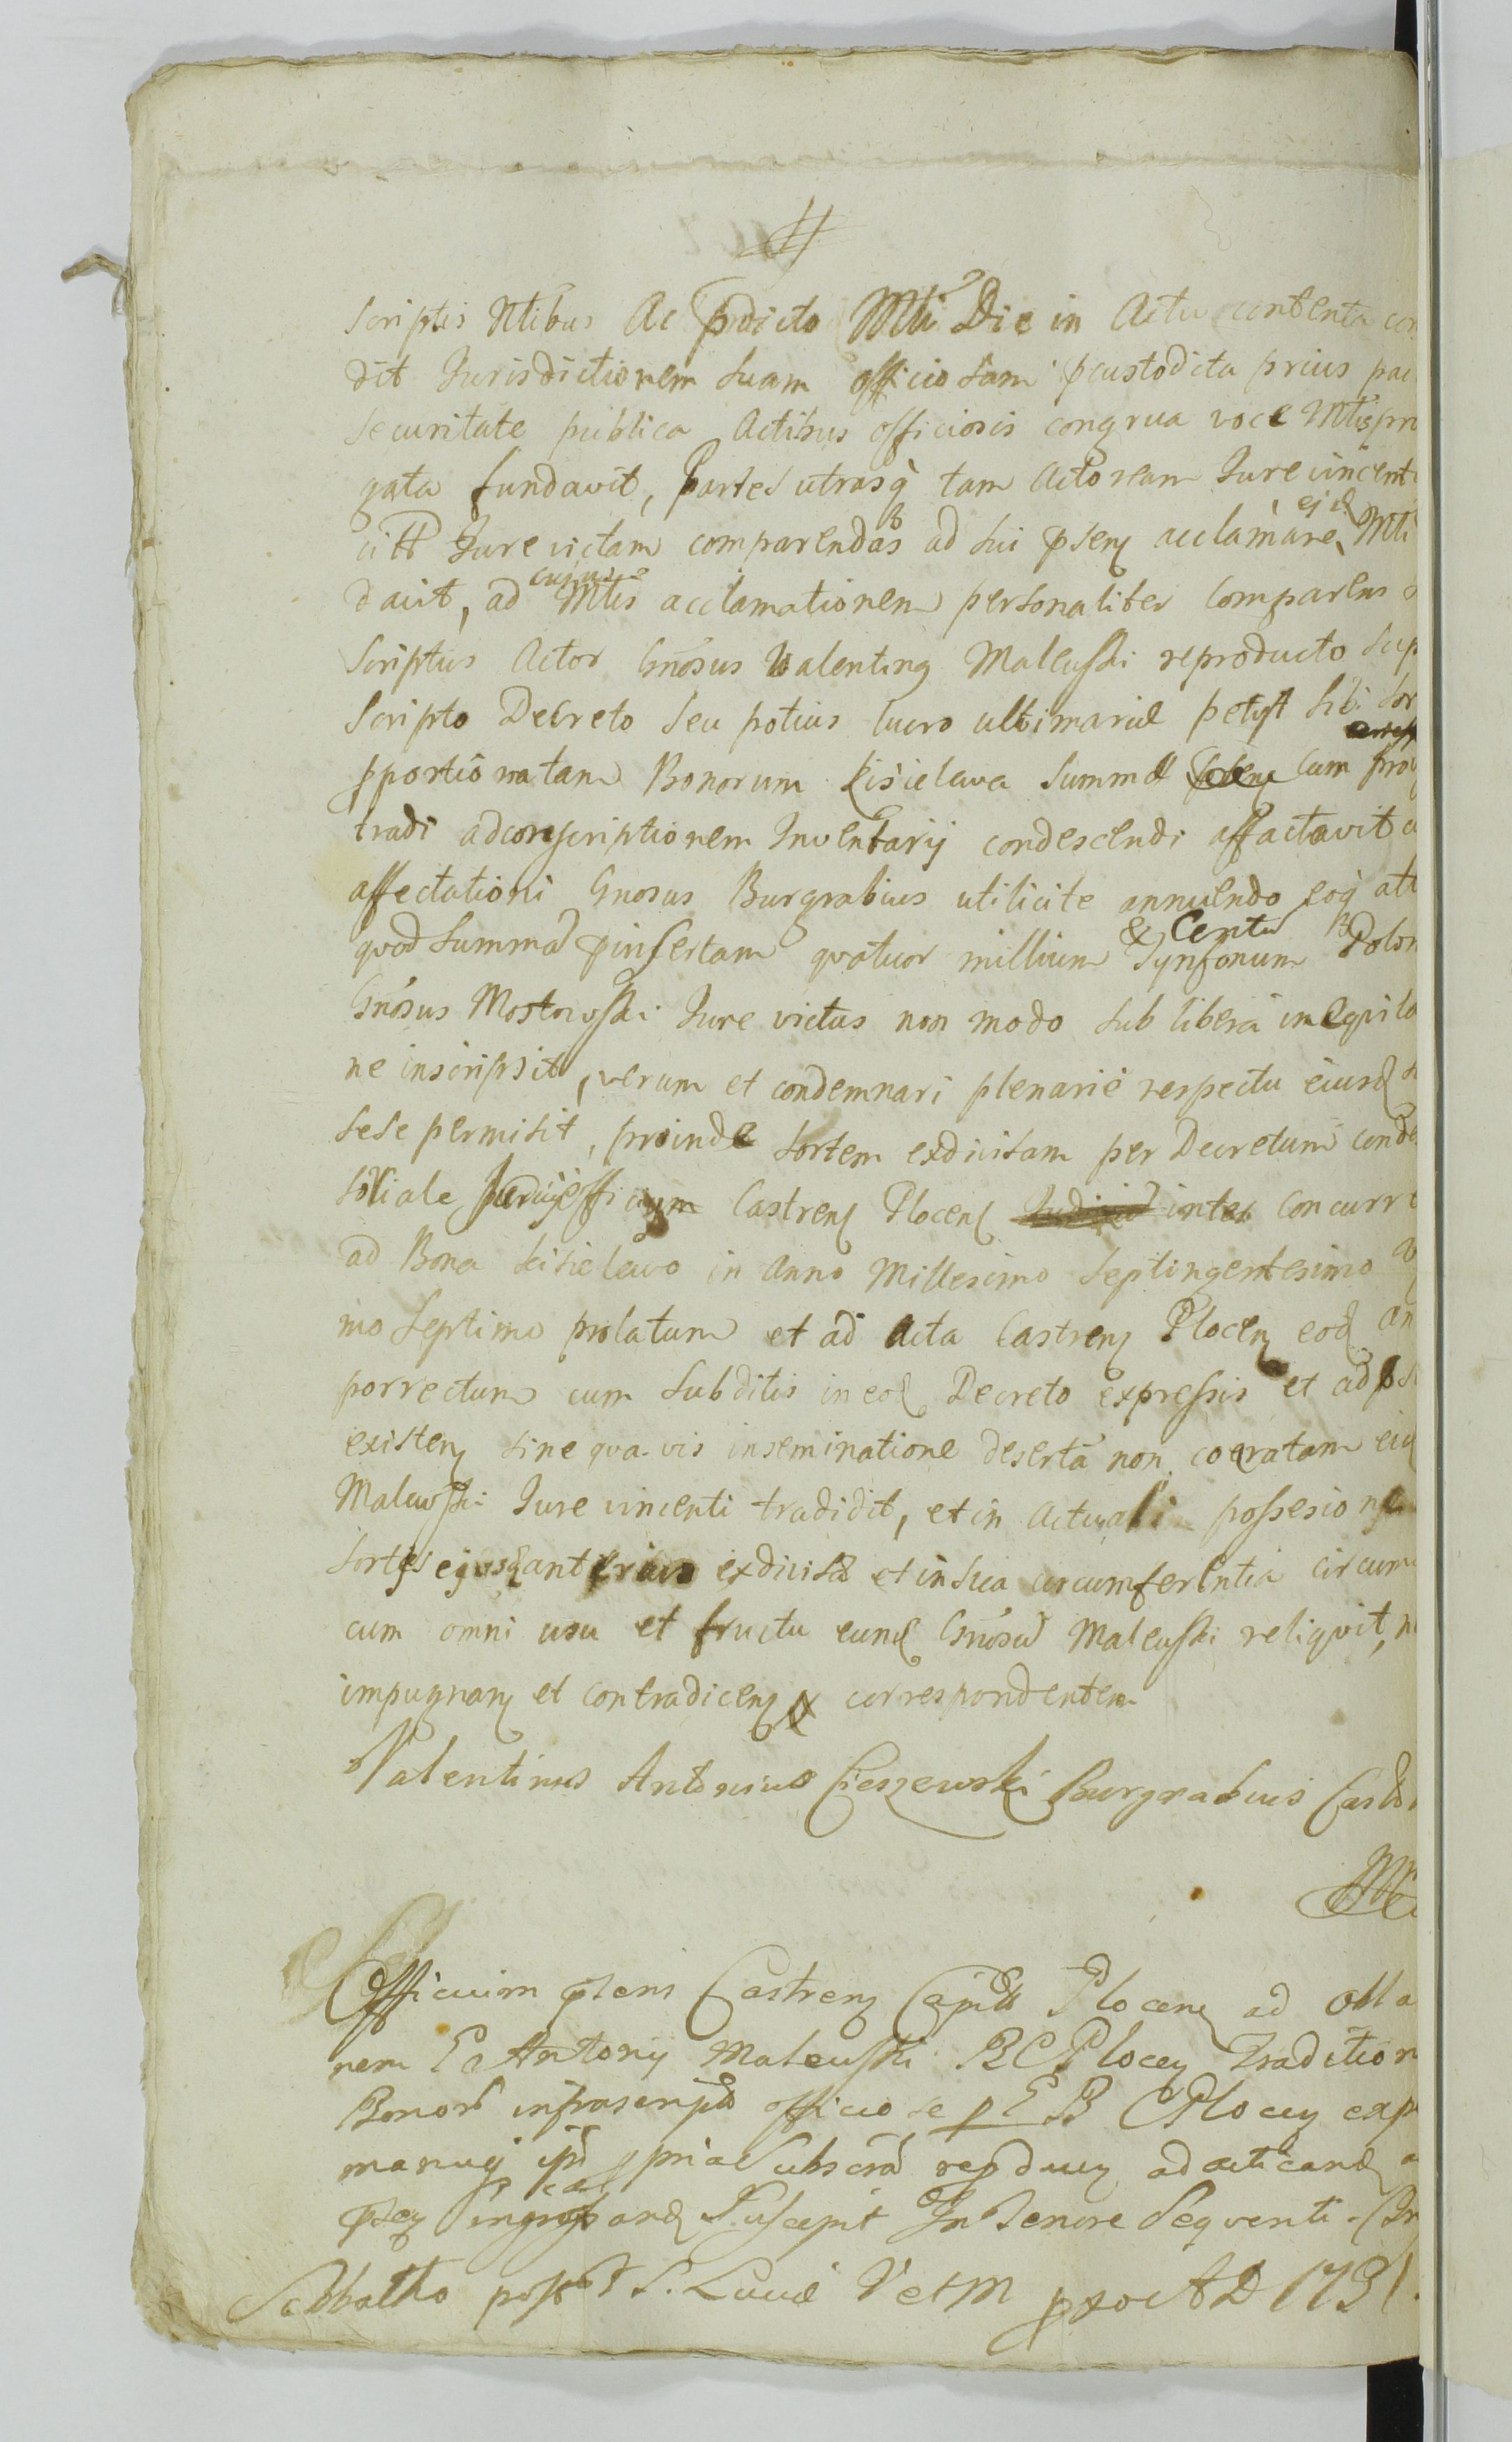 scriptis Ntibus Ac pdicto Mtli Die in Actu contenta con
dit Jurisdictionem suam officiosam pcustodita prius pac
securitate publica Actibus officiosis congrua voce Mtlis pro
gata fundavit, partes utrasq tam Actoream Jure vincent
Jure victam comparendas ad sui psen acclamare ejd Mtli
davit, ad cujus Mtlis acclamationem personaliter comparens
scriptus Actor Gnosus Valentinq Maleuski reproducto sup
scripto Decreto seu potius lucro ultimariae petyt sibi sor
pportionatam Bonorum Kisielewa summae cum
tradi ad conscriptionem Inventarij condescendi affactavit
affectationi Gnosus Burgrabius utilicite annuendo eoq att
quod summam pinsertam quatuor millium & Centu Tynfonum Polon
Gnosus Mostowski Jure victus non modo sub libera ineqvita
ne inscripsit, verum et condemnari plenarie respectu eiusd
sese permisit, proinde sortem exdivisam per Decretum conde
soriale officium Castren Plocen inter Concurre
ad Bona Kisielewo in Anno Millesimo Septingentesimo
mo septimo prolatum et ad Acta Castren Plocen eod An
porrectum cum subditis in eod Decreto expressis et ad
existen sine qva vis inseminatione deserta non coaratam
Maleuski Jure vincenti tradidit, et in Actuali possesione
sortis ejusd anterius exdivisae et in sua circumferentia circum
cum omni usu et fructu eund Gnosu Maleuski reliqvit,
impugnan et contradicen & correspondentem
Valentinus Antonius Cieszewski Burgrabius Castr
Officium psens Castren Capitlle Plocen ad obla
nem G Antonij Maleuski B C Plocen Tradition
Bonor infrascripto officiose p G B C Plocen exp
manuq ipsi ppria subscra repducen ad acticand
psen ingrossand suscepit In Tenore Seqventi
Sabbatho post F S. Lucae V et M pxo A D 1731.